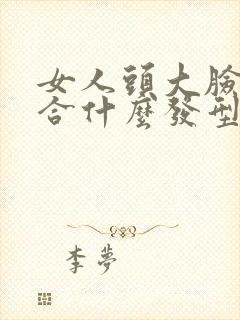 女人頭大臉
合什麼發型
李夢